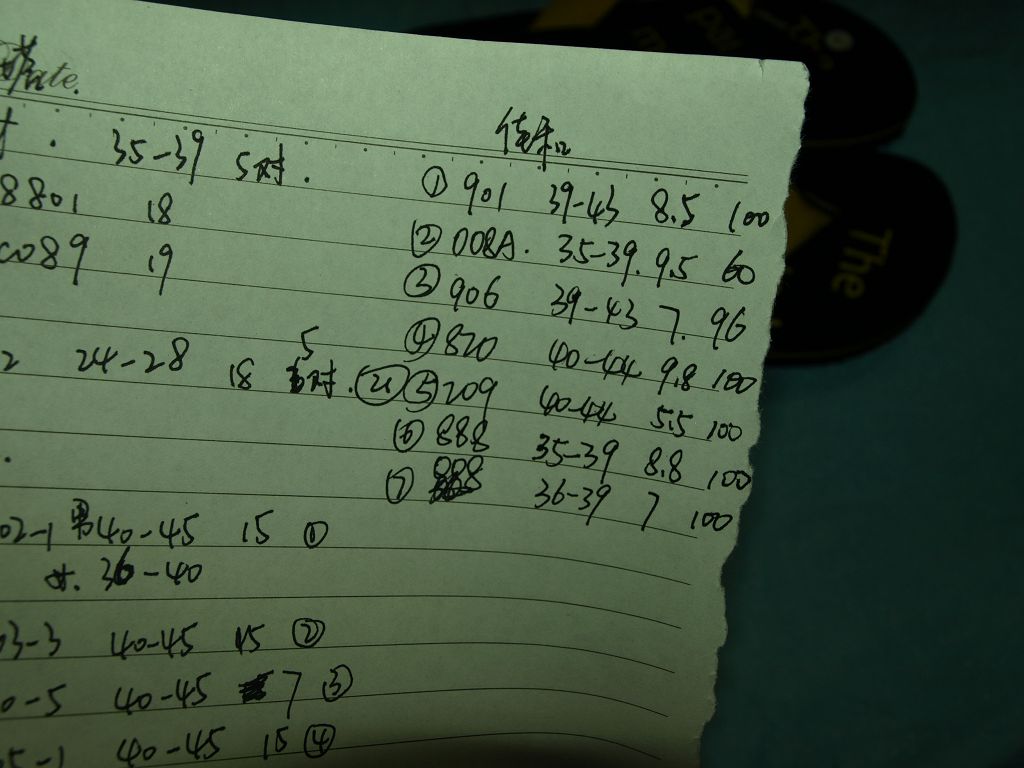 Date.
35-39 5对.
8801 18
C089 19
2 24-28 18 5对. 21
02-1 男40-45 15 ①
女. 36-40
03-3 40-45 15 ②
0-5 40-45 7 ③
5-1 40-45 15 ④
佳和
① 901 39-43 8.5 100
② 008A. 35-39. 9.5 60
③ 906 39-43 7. 96
④ 820 40-44 9.8 100
⑤ 209 40-44 5.5 100
⑥ 888 35-39 8.8 100
⑦ 808 36-39 7 100
The